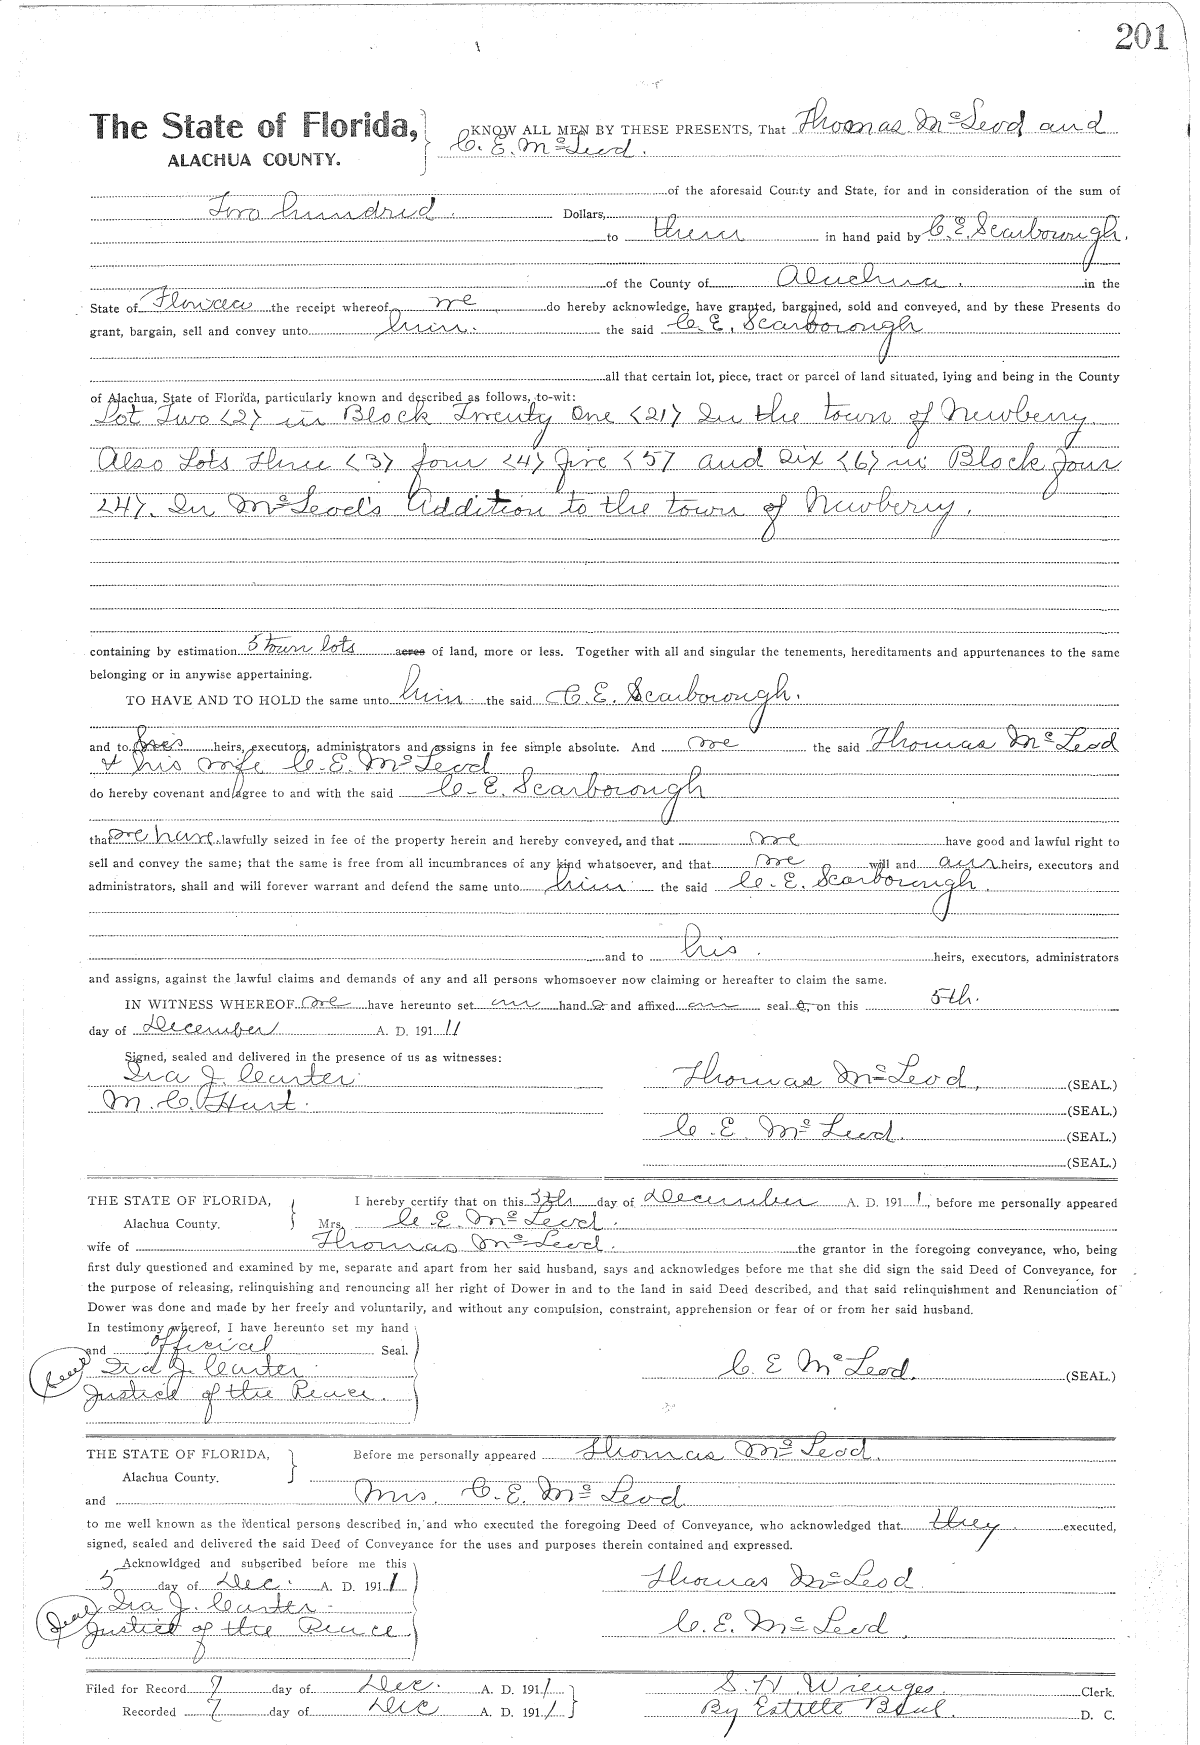 201
The State of Florida, KNOW ALL MEN BY THESE PRESENTS, That Thomas McLeod and
ALACHUA COUNTY. C. E. McLeod.
of the aforesaid County and State, for and in consideration of the sum of
Two hundred. Dollars,
to them in hand paid by C. E. Scarborough.
of the County of Alachua. in the
State of Florida the receipt whereof we do hereby acknowledge, have granted, bargained, sold and conveyed, and by these Presents do
grant, bargain, sell and convey unto him. the said C. E. Scarborough
all that certain lot, piece, tract or parcel of land situated, lying and being in the County
of Alachua, State of Florida, particularly known and described as follows, to-wit:
Lot Two <2> in Block Twenty One <21> In the town of Newberry
Also Lots three <3> four <4> five <5> and Six <6> in Block four
<4>. In McLeod's Addition to the town of Newberry.
containing by estimation 5 town lots acres of land, more or less. Together with all and singular the tenements, hereditaments and appurtenances to the same
belonging or in anywise appertaining.
TO HAVE AND TO HOLD the same unto him the said C. E. Scarborough.
and to his heirs, executors, administrators and assigns in fee simple absolute. And we the said Thomas McLeod
& his wife C. E. McLeod
do hereby covenant and agree to and with the said C. E. Scarborough
that we have lawfully seized in fee of the property herein and hereby conveyed, and that we have good and lawful right to
sell and convey the same; that the same is free from all incumbrances of any kind whatsoever, and that we will and our heirs, executors and
administrators, shall and will forever warrant and defend the same unto him the said C. E. Scarborough.
and to his. heirs, executors, administrators
and assigns, against the lawful claims and demands of any and all persons whomsoever now claiming or hereafter to claim the same.
IN WITNESS WHEREOF we have hereunto set our hand s and affixed our seal s, on this 5th.
day of December A. D. 191 11
Signed, sealed and delivered in the presence of us as witnesses:
Ira J. Carter Thomas McLeod. (SEAL.)
M. C. Hurt. (SEAL.)
C. E. McLeod. (SEAL.)
(SEAL.)
THE STATE OF FLORIDA, I hereby certify that on this 5th day of December A. D. 191 1., before me personally appeared
Alachua County. Mrs. C. E. McLeod.
wife of Thomas McLeod. the grantor in the foregoing conveyance, who, being
first duly questioned and examined by me, separate and apart from her said husband, says and acknowledges before me that she did sign the said Deed of Conveyance, for
the purpose of releasing, relinquishing and renouncing all her right of Dower in and to the land in said Deed described, and that said relinquishment and Renunciation of
Dower was done and made by her freely and voluntarily, and without any compulsion, constraint, apprehension or fear of or from her said husband.
In testimony whereof, I have hereunto set my hand
and official Seal.
Seal Ira J. Carter C. E McLeod. (SEAL.)
Justice of the Peace.
THE STATE OF FLORIDA, Before me personally appeared Thomas McLeod.
Alachua County.
and Mrs. C. E. McLeod
to me well known as the identical persons described in, and who executed the foregoing Deed of Conveyance, who acknowledged that they executed,
signed, sealed and delivered the said Deed of Conveyance for the uses and purposes therein contained and expressed.
Acknowldged and subscribed before me this
5 day of Dec. A. D. 191 1 Thomas McLeod
Seal Ira J. Carter
Justice of the Peace C. E. McLeod.
Filed for Record 7 day of Dec. A. D. 191 1 S. H. Wienges. Clerk.
Recorded 7 day of Dec A. D. 191 1 By Estelle D. C.